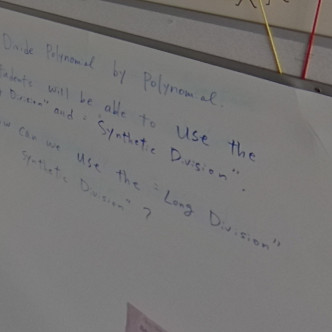 Divide Polynomial by Polynomial.
will be able to use the
Division" and "Synthetic Division".
can we use the "Long Division"
Synthetic Division"?